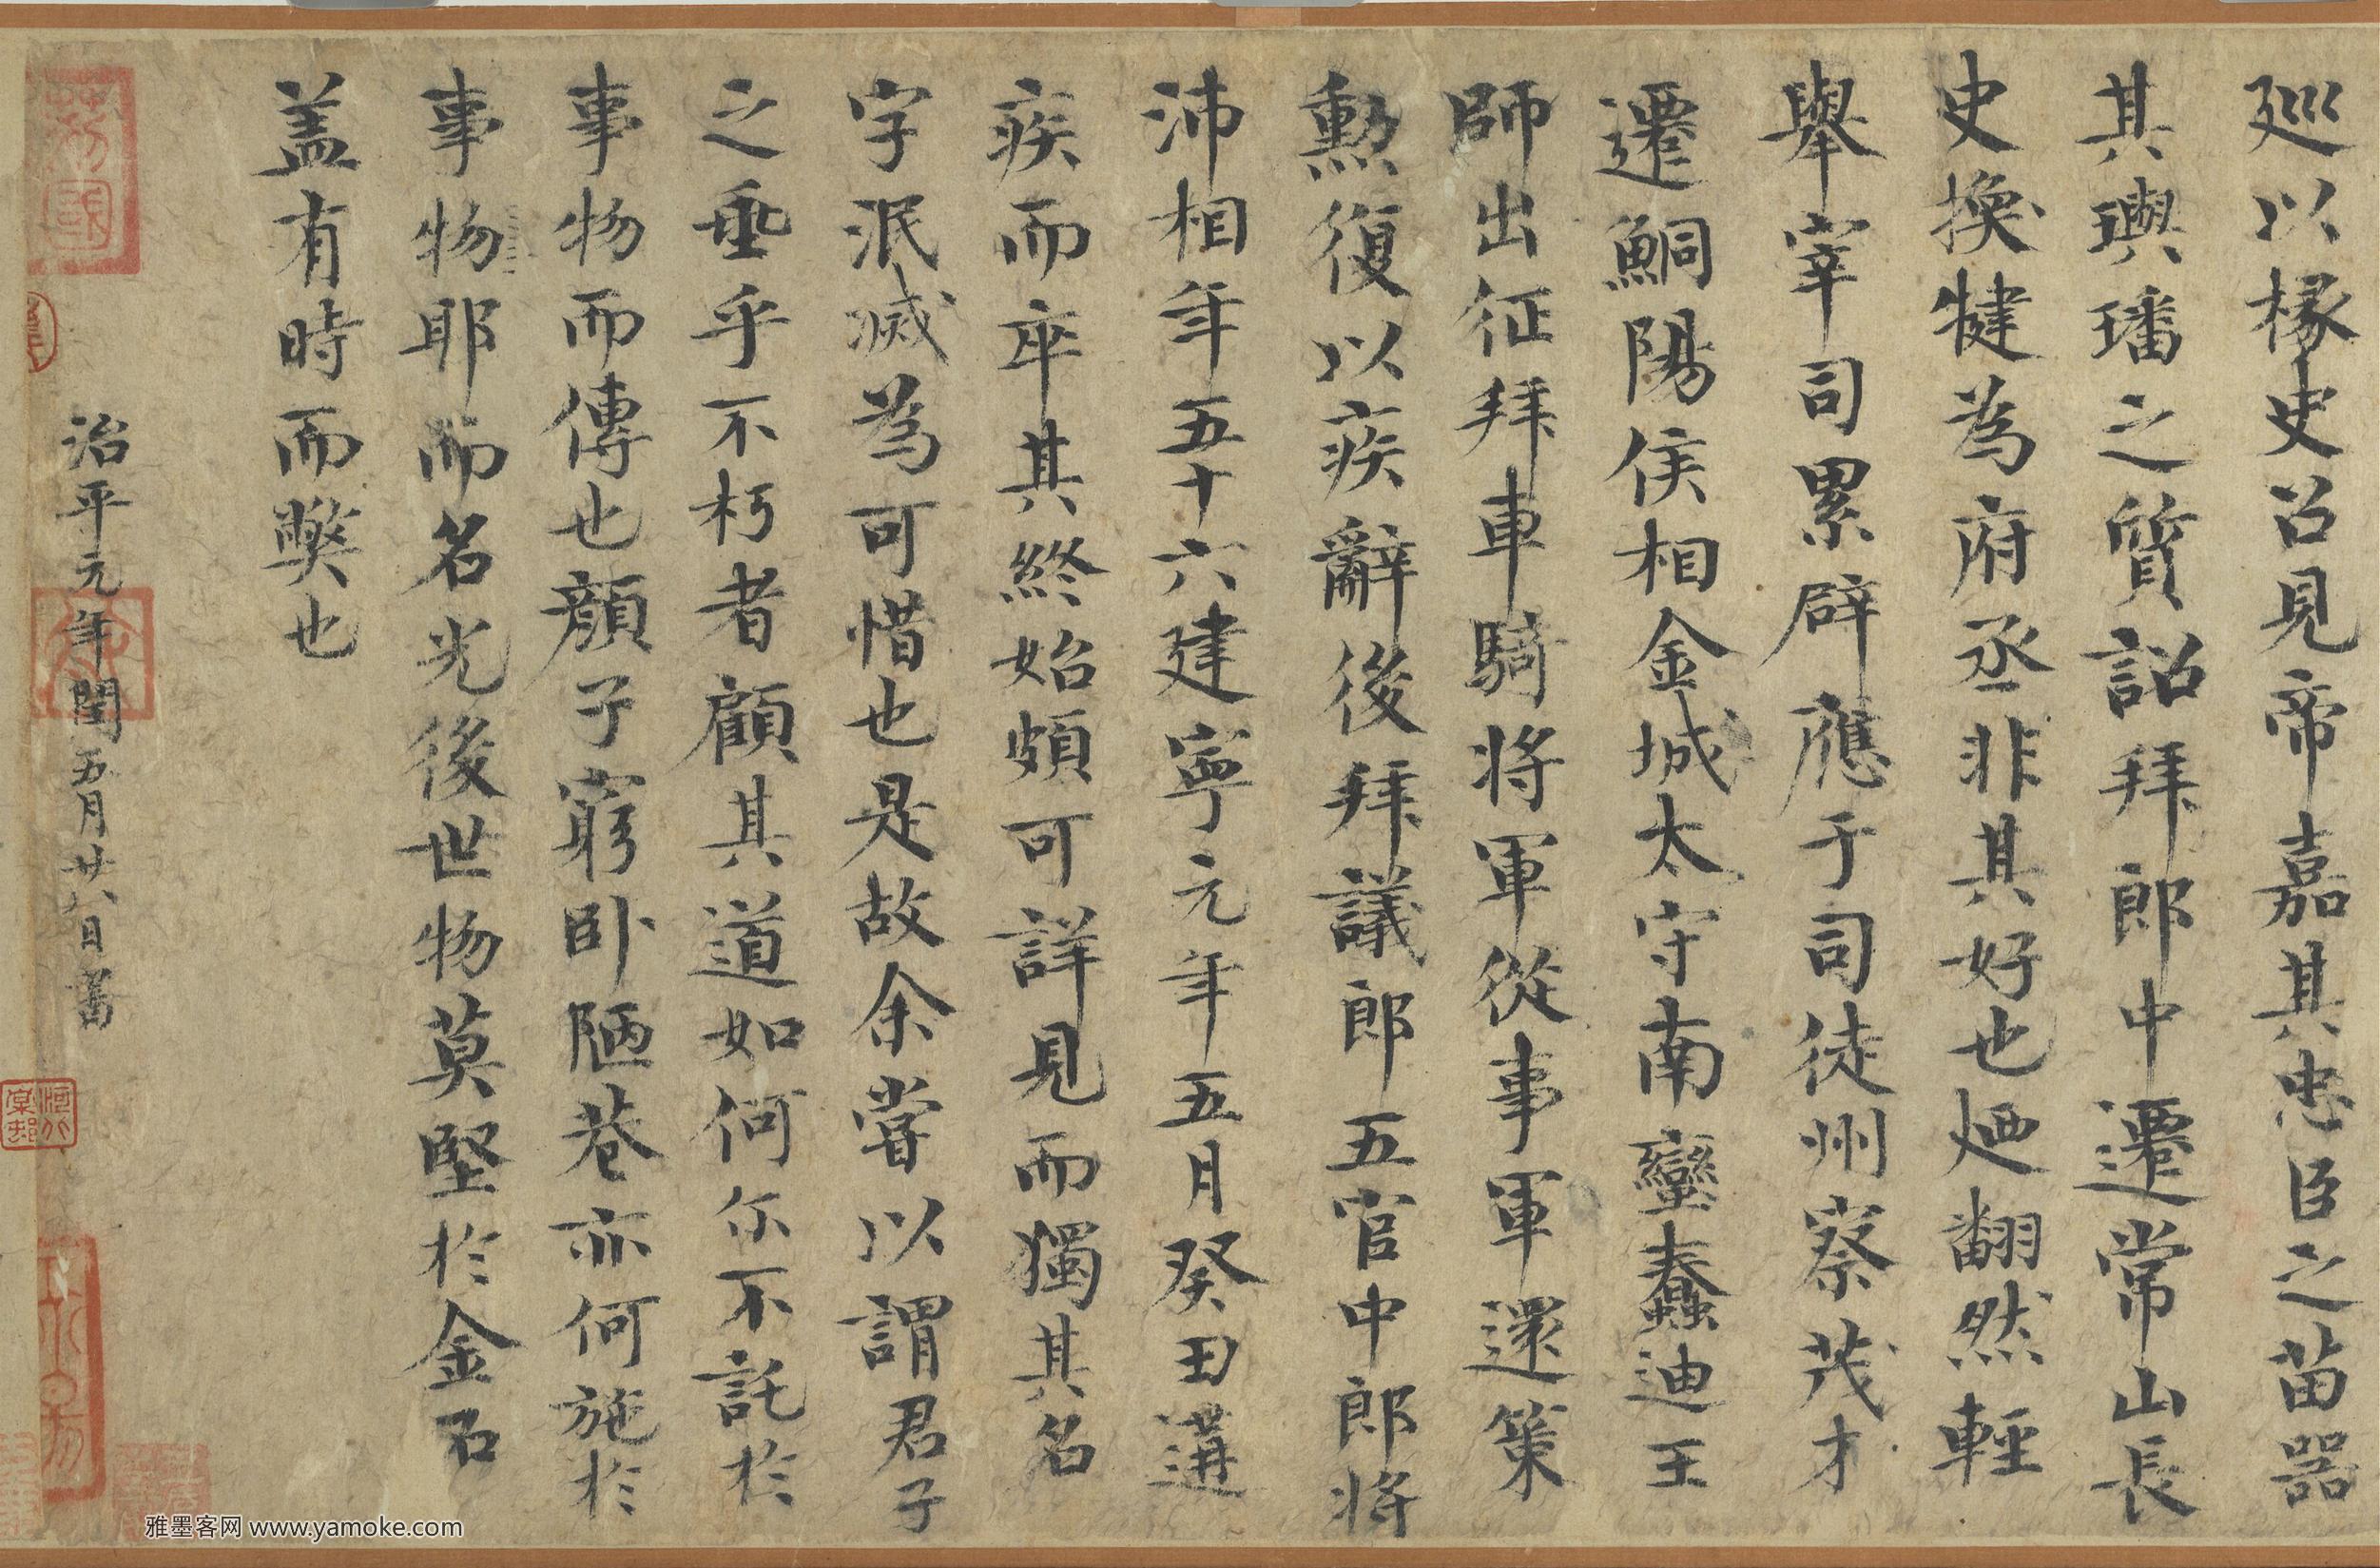 廵以椽史召見帝嘉其忠臣之苗器
其璵璠之質詔拜郎中遷常山長
史換犍為府丞非其好也廼翻然輕
舉宰司累辟應于司徒州察茂才
遷鮦陽侯相金城太守南蠻蠢迪王
師出征拜車騎將軍從事軍還策
勲復以疾辭後拜議郎五官中郎將
沛相年五十六建寧元年五月癸田遘
疾而卒其終始頗可詳見而獨其名
字泯滅為可惜也是故余嘗以謂君子
之垂乎不朽者顧其道如何尓不託於
事物而傳也顏子窮卧陋巷亦何施於
事物耶而名光後世物莫堅於金石
盖有時而弊也
治平元年閏五月廿八日書
雅墨客网 www.yamoke.com